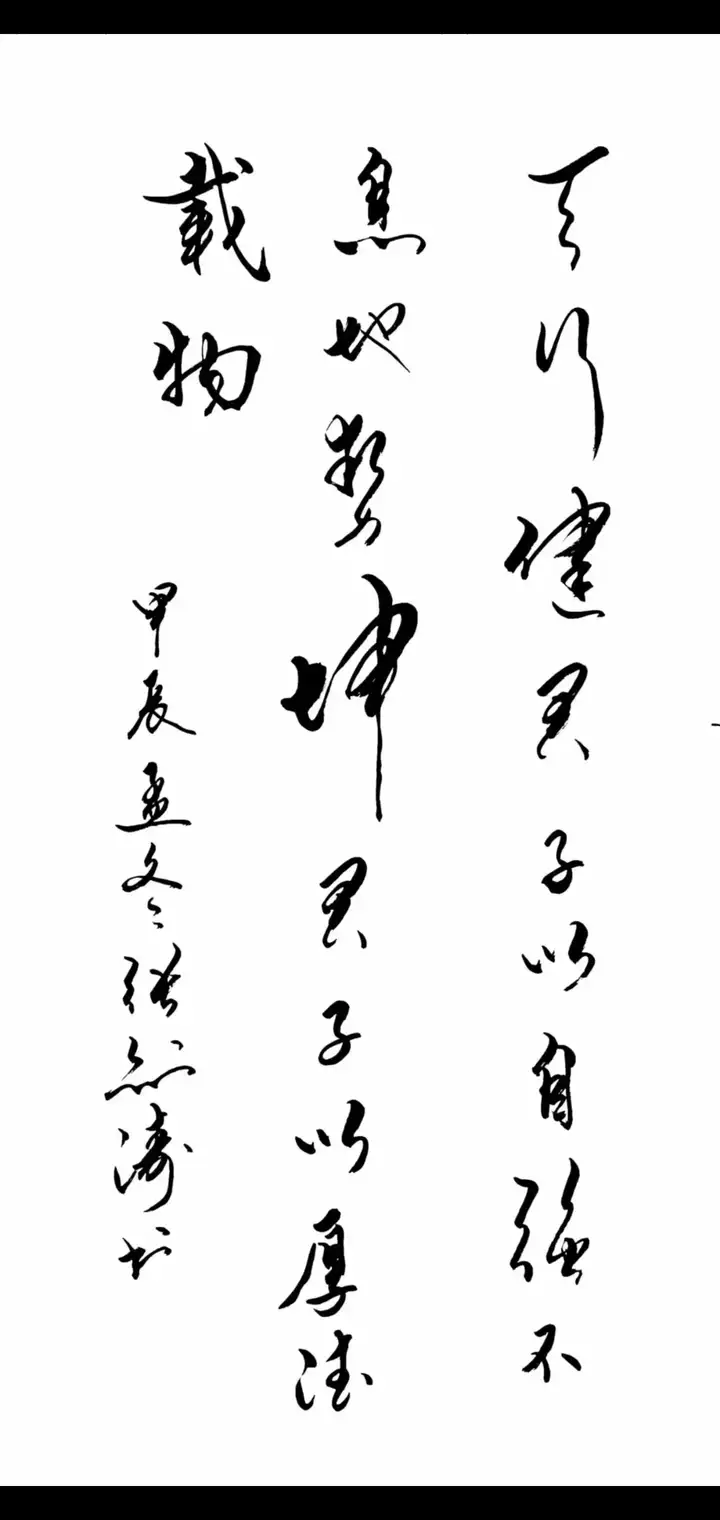 天行健君子以自强不
息地势坤君子以厚德
载物
甲辰孟冬张然涛书